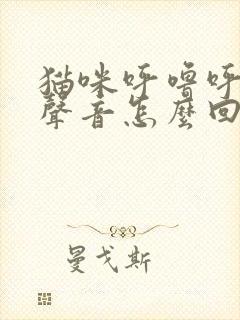 猫咪呼噜呼
聲音怎麼回
曼戈斯